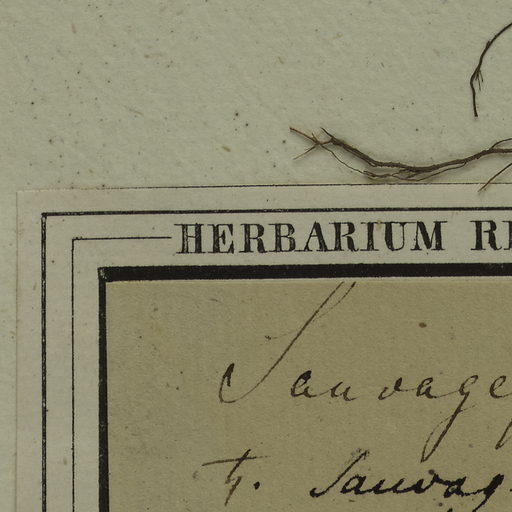 HERBARIUM
Sauvage
Sauvag